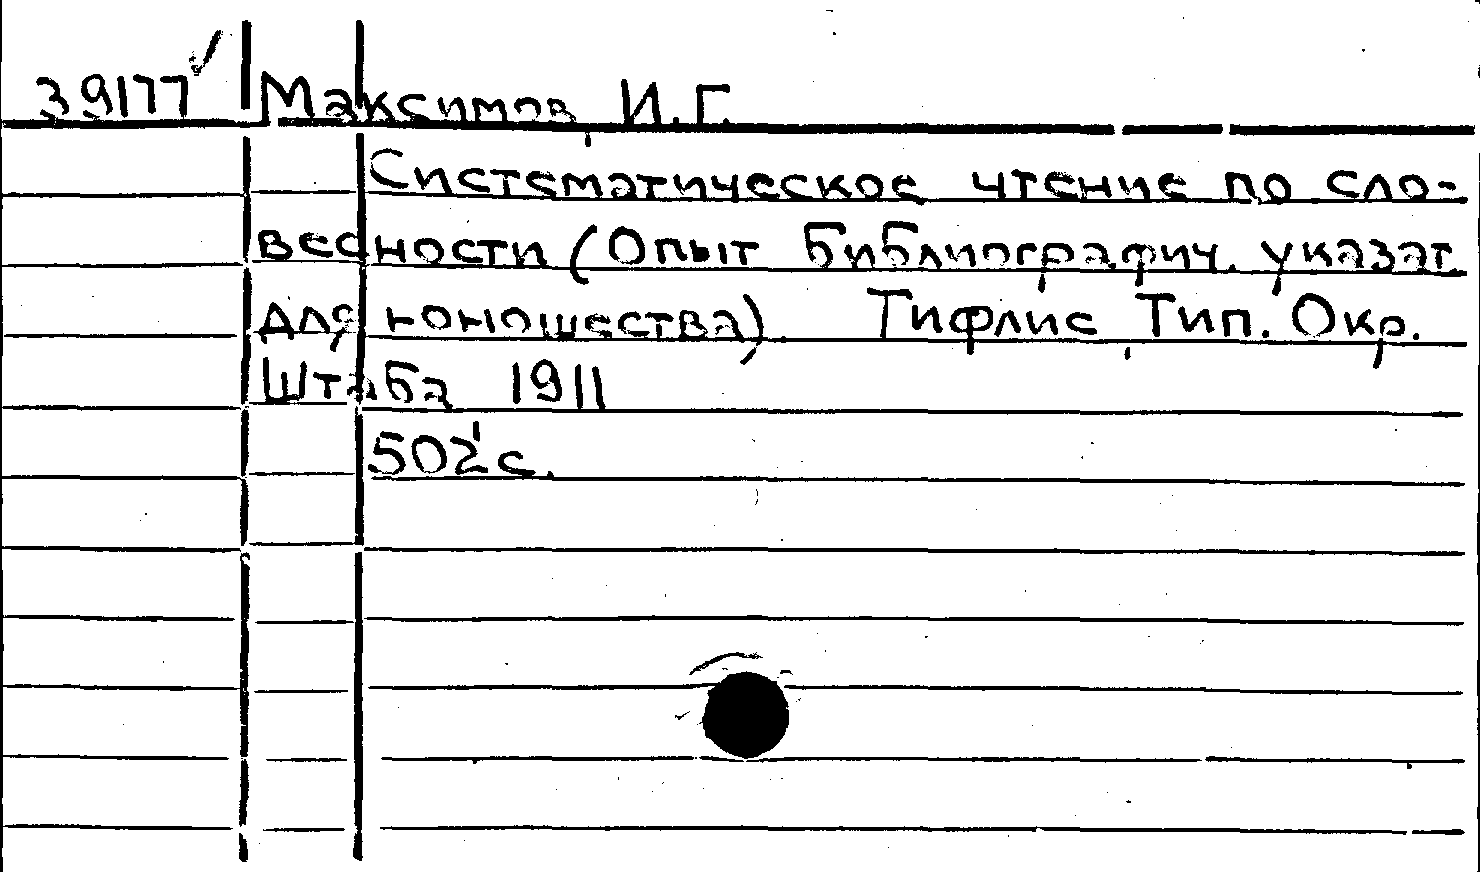 39177 Максимов, И.Г.
Систематическое чтение по сло-
весности (Опыт библиографич. указат.
для юношества). Тифлис, Тип. Окр.
Штаба 1911
502 с.